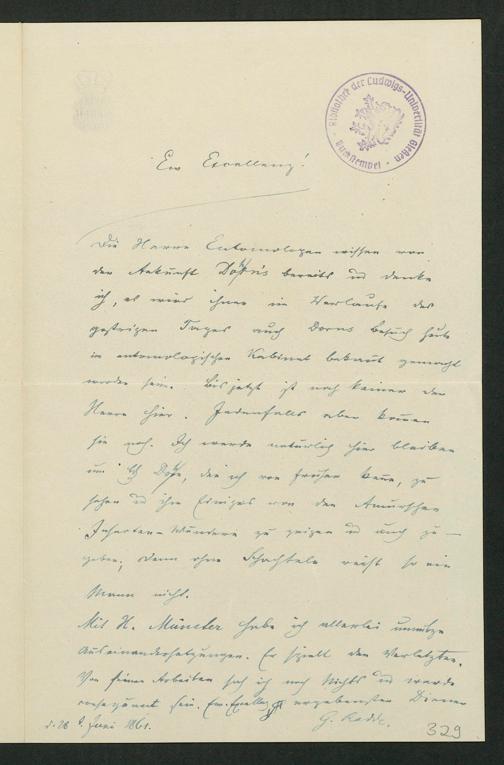 Bibliothek der Ludwigs-Universität Gießen
Tauschstempel
Ew Excellenz!
Die Herren Entomologen wissen von
der Ankunft bereits u denke
ich, es wird ihnen im Verlaufe des
gestrigen Tages auch Dorns Besuch heute
im entomologischen Kabinet bekannt gemacht
worden sein. Bis jetzt ist noch keiner der
Herren hier. Jedenfalls aber kommen
sie noch. Ich werde natürlich hier bleiben
um den ich von früher kenne, zu
sehen u ihm Einiges von den Amurschen
Insecten-Wundern zu zeigen u auch zu
geben, denn ohne Schachteln reist so ein
Mann nicht.
Mit H. Münster habe ich allerlei unnütze
Auseinandersetzungen. Er spielt den Verletzten.
Von seinen Arbeiten sah ich noch Nichts u werde
sein. Ew. Excellenz ergebenster Diener
d. 28 Juni 1861. G. Radde.
329